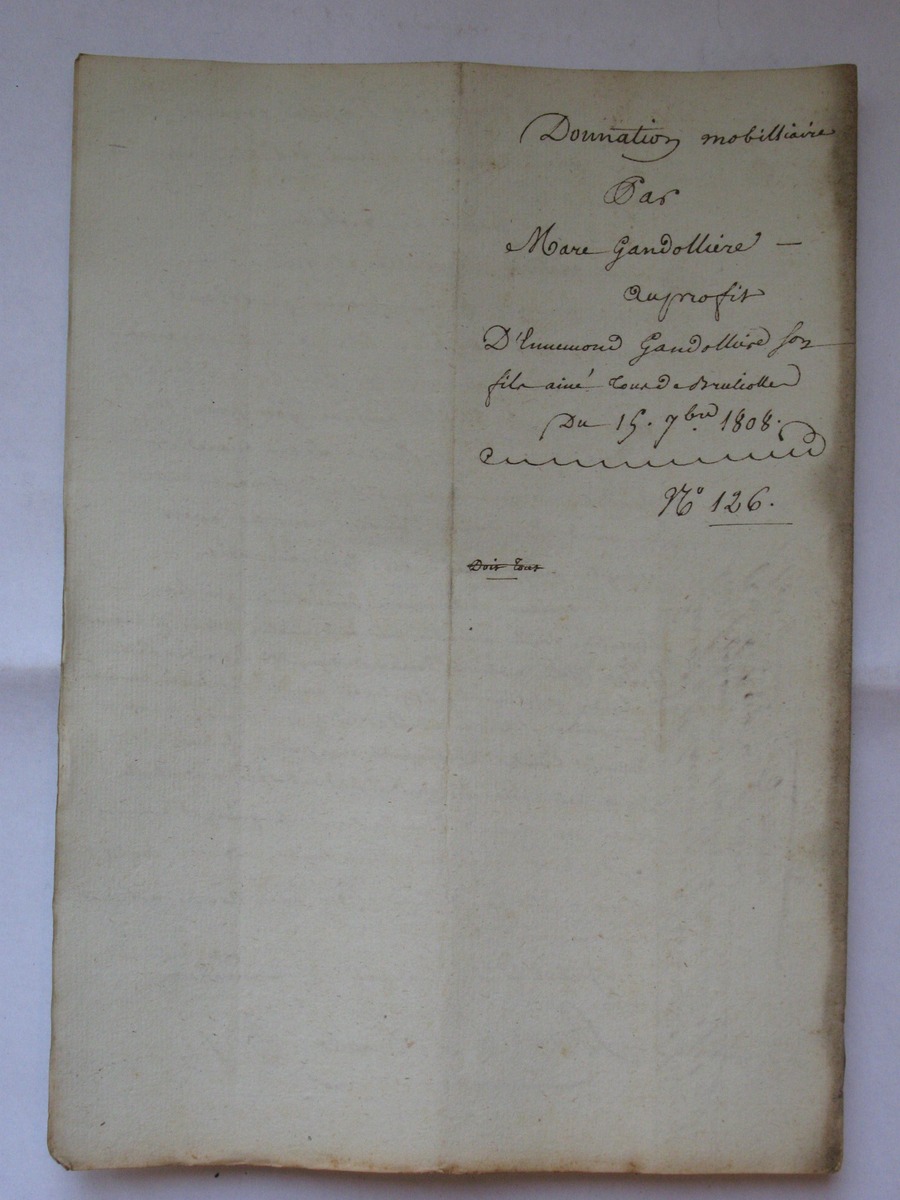 Donnation mobilliaire
Par
Marc Gandollière –
au profit
D'Ennemond Gandollière son
fils ainé tous de Bruliolles
Du 15. 7.bre 1808.
N° 126.
Doit tout